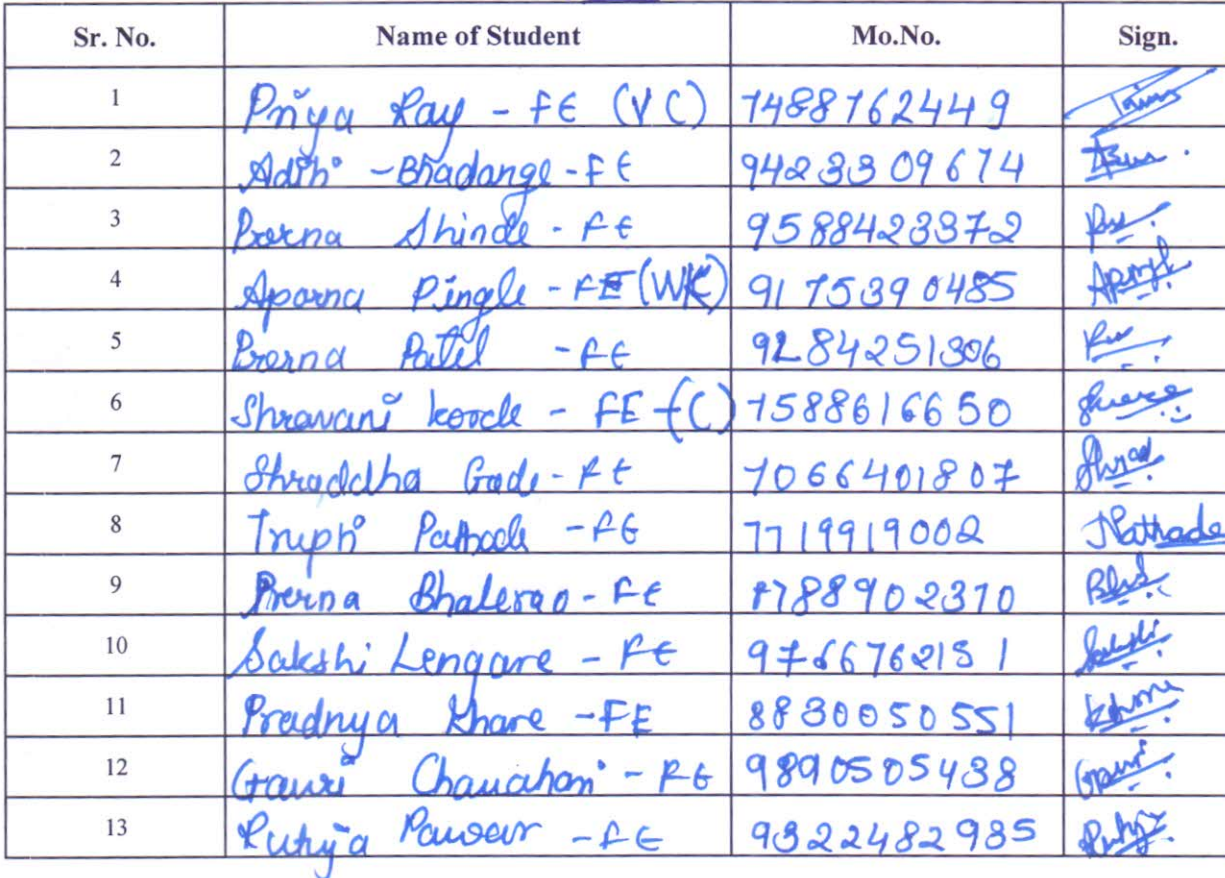 Sr. No. Name of Student Mo.No. Sign.
1 Priya Ray - FE (VC) 7488762449
2 Aditi - Bhadange - FE 9423309674
3 Prerna Shinde - FE 9588423372
4 Aparna Pingle - FE (WK) 9175390485
5 Prerna Patil - FE 9284251306
6 Shravani korde - FE - (C) 7588616650
7 Shraddha Gade - FE 7066401807
8 Trupti Pathade - FE 7719919002 Pathade
9 Prerna Bhalerao - FE 7788902370
10 Sakshi Lengare - FE 9766762151
11 Pradnya Khare - FE 8830050551
12 Gauri Chauahan - FE 9890505438
13 Rutuja Pawar - FE 9322482985